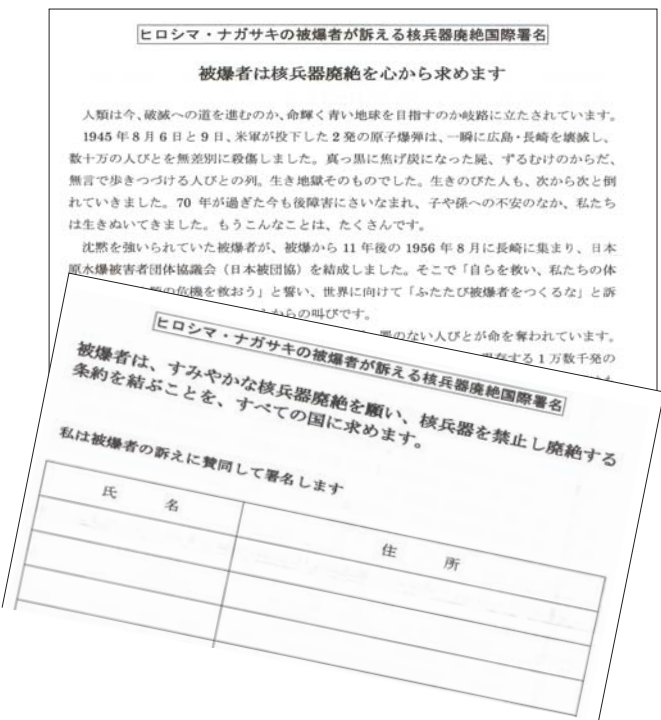 ヒロシマ・ナガサキの被爆者が訴える核兵器廃絶国際署名
被爆者は核兵器廃絶を心から求めます
人類は今、破滅への道を進むのか、命輝く青い地球を目指すのか岐路に立たされています。
1945年8月6日と9日、米軍が投下した2発の原子爆弾は、一瞬に広島・長崎を壊滅し、
数十万の人びとを無差別に殺傷しました。真っ黒に焦げ炭になった屍、ずるむけのからだ、
無言で歩きつづける人びとの列。生き地獄そのものでした。生きのびた人も、次から次と倒
れていきました。70年が過ぎた今も後障害にさいなまれ、子や孫への不安のなか、私たち
は生きぬいてきました。もうこんなことは、たくさんです。
沈黙を強いられていた被爆者が、被爆から11年後の1956年8月に長崎に集まり、日本
原水爆被害者団体協議会（日本被団協）を結成しました。そこで「自らを救い、私たちの体
の危機を救おう」と誓い、世界に向けて「ふたたび被爆者をつくるな」と訴
からの叫びです。
罪のない人びとが命を奪われています。
存する1万数千発の
ヒロシマ・ナガサキの被爆者が訴える核兵器廃絶国際署名
被爆者は、すみやかな核兵器廃絶を願い、核兵器を禁止し廃絶する
条約を結ぶことを、すべての国に求めます。
私は被爆者の訴えに賛同して署名します
氏 名 住 所